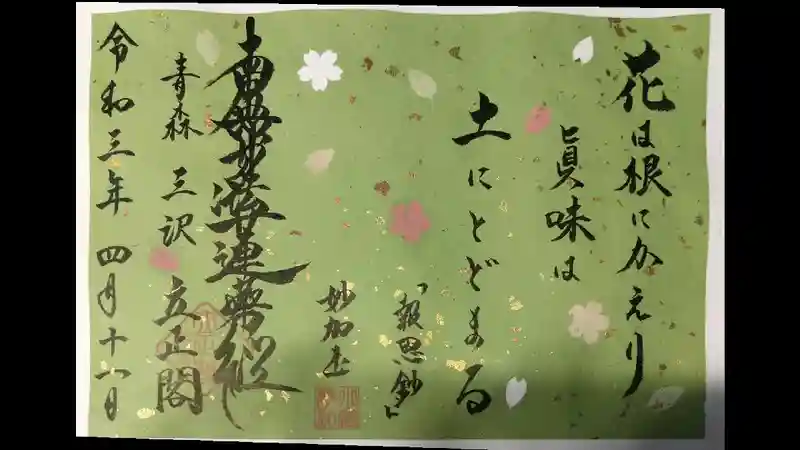 花は根にかえり
真味は
土にとどまる
「報恩鈔」
妙加
南無妙法蓮華経
青森 三沢 立正閣
令和三年 四月十六日